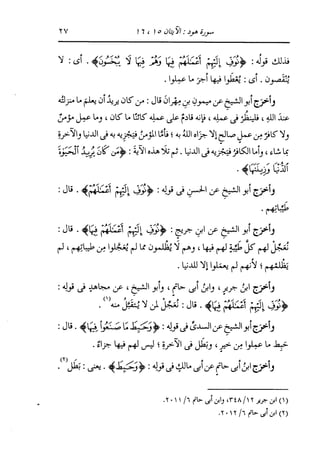 سورة هود: الآيتان ١٥، ١٦ ٢٧
فذلك قولُه: ﴿نُوَفِّ إِلَيْهِمْ أَعْمَالَهُمْ فِيهَا وَهُمْ فِيهَا لَا يُبْخَسُونَ﴾. أى: لا
يُنقَصون. أى: يُعْطَوا فيها أجرَ ما عمِلوا.
وأخرَج أبو الشيخِ عن ميمونِ بنِ مِهْرانَ قال: من كان يريدُ أن يعلمَ ما منزلتُه
عندَ اللهِ، فلينظُرْ فى عملِه، فإنه قادمٌ على عملِه كائنًا ما كان، وما عمِل مؤمنٌ
ولا كافرٌ مِن عملٍ صالحٍ إلا جزاه اللهُ به؛ فأمَّا المؤمنُ فيَجْزِيه به فى الدنيا والآخرةِ
بما شاء، وأما الكافرُ فيَجْزِيه فى الدنيا. ثم تلا هذه الآيةَ: ﴿مَن كَانَ يُرِيدُ الْحَيَوٰةَ
الدُّنْيَا وَزِينَتَهَا﴾.
وأخرَج أبو الشيخِ عن الحسنِ فى قولِه: ﴿نُوَفِّ إِلَيْهِمْ أَعْمَالَهُمْ﴾. قال:
طيِّباتِهم.
وأخرَج أبو الشيخِ عن ابنِ جريجٍ: ﴿نُوَفِّ إِلَيْهِمْ أَعْمَالَهُمْ فِيهَا﴾. قال:
نُعجِّلُ لهم كلَّ طيِّبةٍ لهم فيها، وهم لا يُظلمون بما لم يُعجَّلوا مِن طيباتِهم، لم
يَظلِمْهم؛ لأنهم لم يعمَلوا إلا للدنيا.
وأخرَج ابنُ جريرٍ، وابنُ أبى حاتمٍ، وأبو الشيخِ، عن مجاهدٍ فى قولِه:
﴿نُوَفِّ إِلَيْهِمْ أَعْمَالَهُمْ فِيهَا﴾. قال: نُعجِّلُ لمن لا يُتقبَّلُ منه(١).
وأخرَج أبو الشيخِ عن السدىِّ فى قولِه: ﴿وَحَبِطَ مَا صَنَعُوا فِيهَا﴾. قال:
حبِط ما عمِلوا مِن خيرٍ، وبَطَل فى الآخرةِ؛ ليس لهم فيها جزاءٌ.
وأخرَج ابنُ أبى حاتمٍ عن أبى مالكٍ فى قولِه: ﴿وَحَبِطَ﴾. يعنى: بَطَل(٢).
(١) ابن جرير ١٢/ ٣٤٨، وابن أبى حاتم ٦/ ٢٠١١.
(٢) ابن أبى حاتم ٦/ ٢٠١٢.